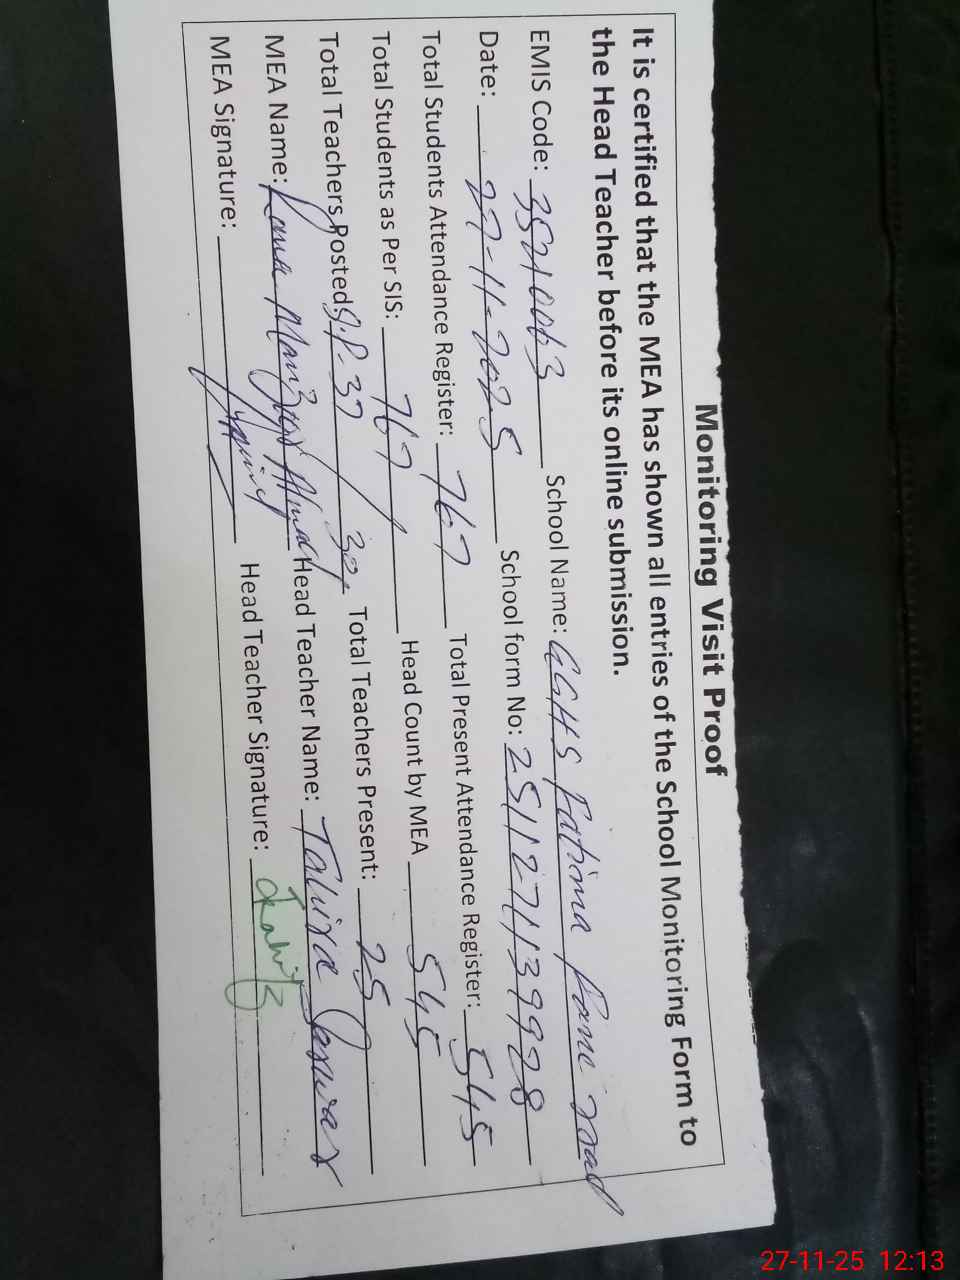 Monitoring Visit Proof
It is certified that the MEA has shown all entries of the School Monitoring Form to
the Head Teacher before its online submission.
EMIS Code: 35210063 School Name: GGHS Fatima
Date: 27-11-2025 School form No: 251127139928
Total Students Attendance Register: 767 Total Present Attendance Register: 545
Total Students as Per SIS: 767 Head Count by MEA 545
Total Teachers Posted S.P-37 / 30 Total Teachers Present: 25
MEA Name: Rana Ahmad Head Teacher Name: Tahira
MEA Signature: Head Teacher Signature:
27-11-25 12:13